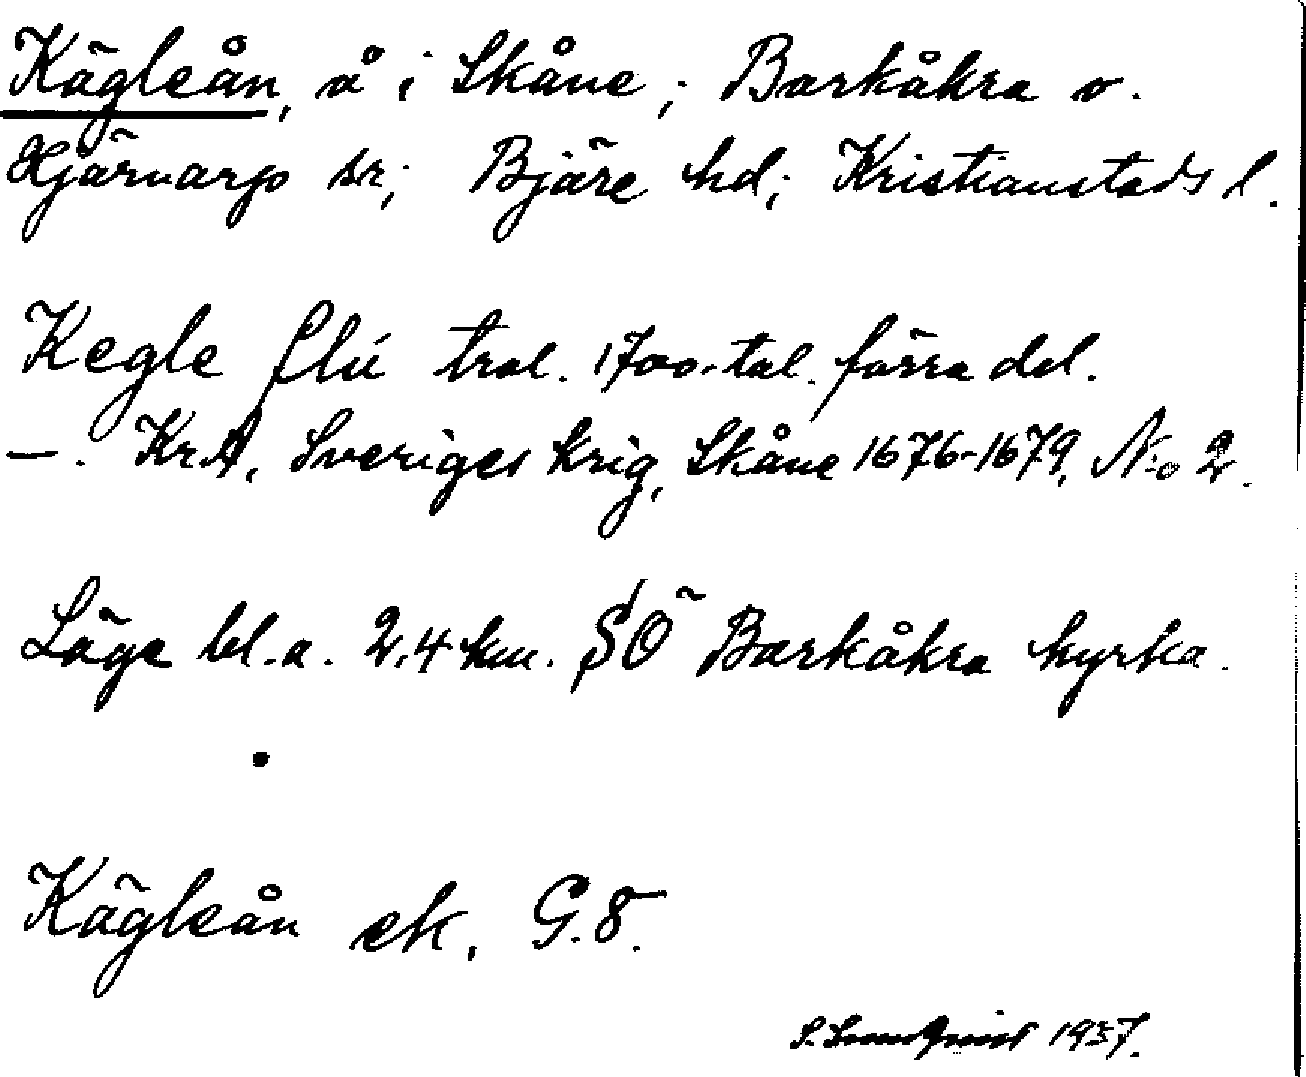 Kägleån, å i Skåne; Barkåkra o.
Hjärnarp sn; Bjäre hd; Kristianstads l.
Kegle flú trol. 1700-tal. förra del.
—. KrA, Sveriges krig, Skåne 1676-1679, N:o 2.
Läge bl.a. 2,4 km. SÖ Barkåkra kyrka.
Kägleån ek. G.8.
S. Lundquist 1937.